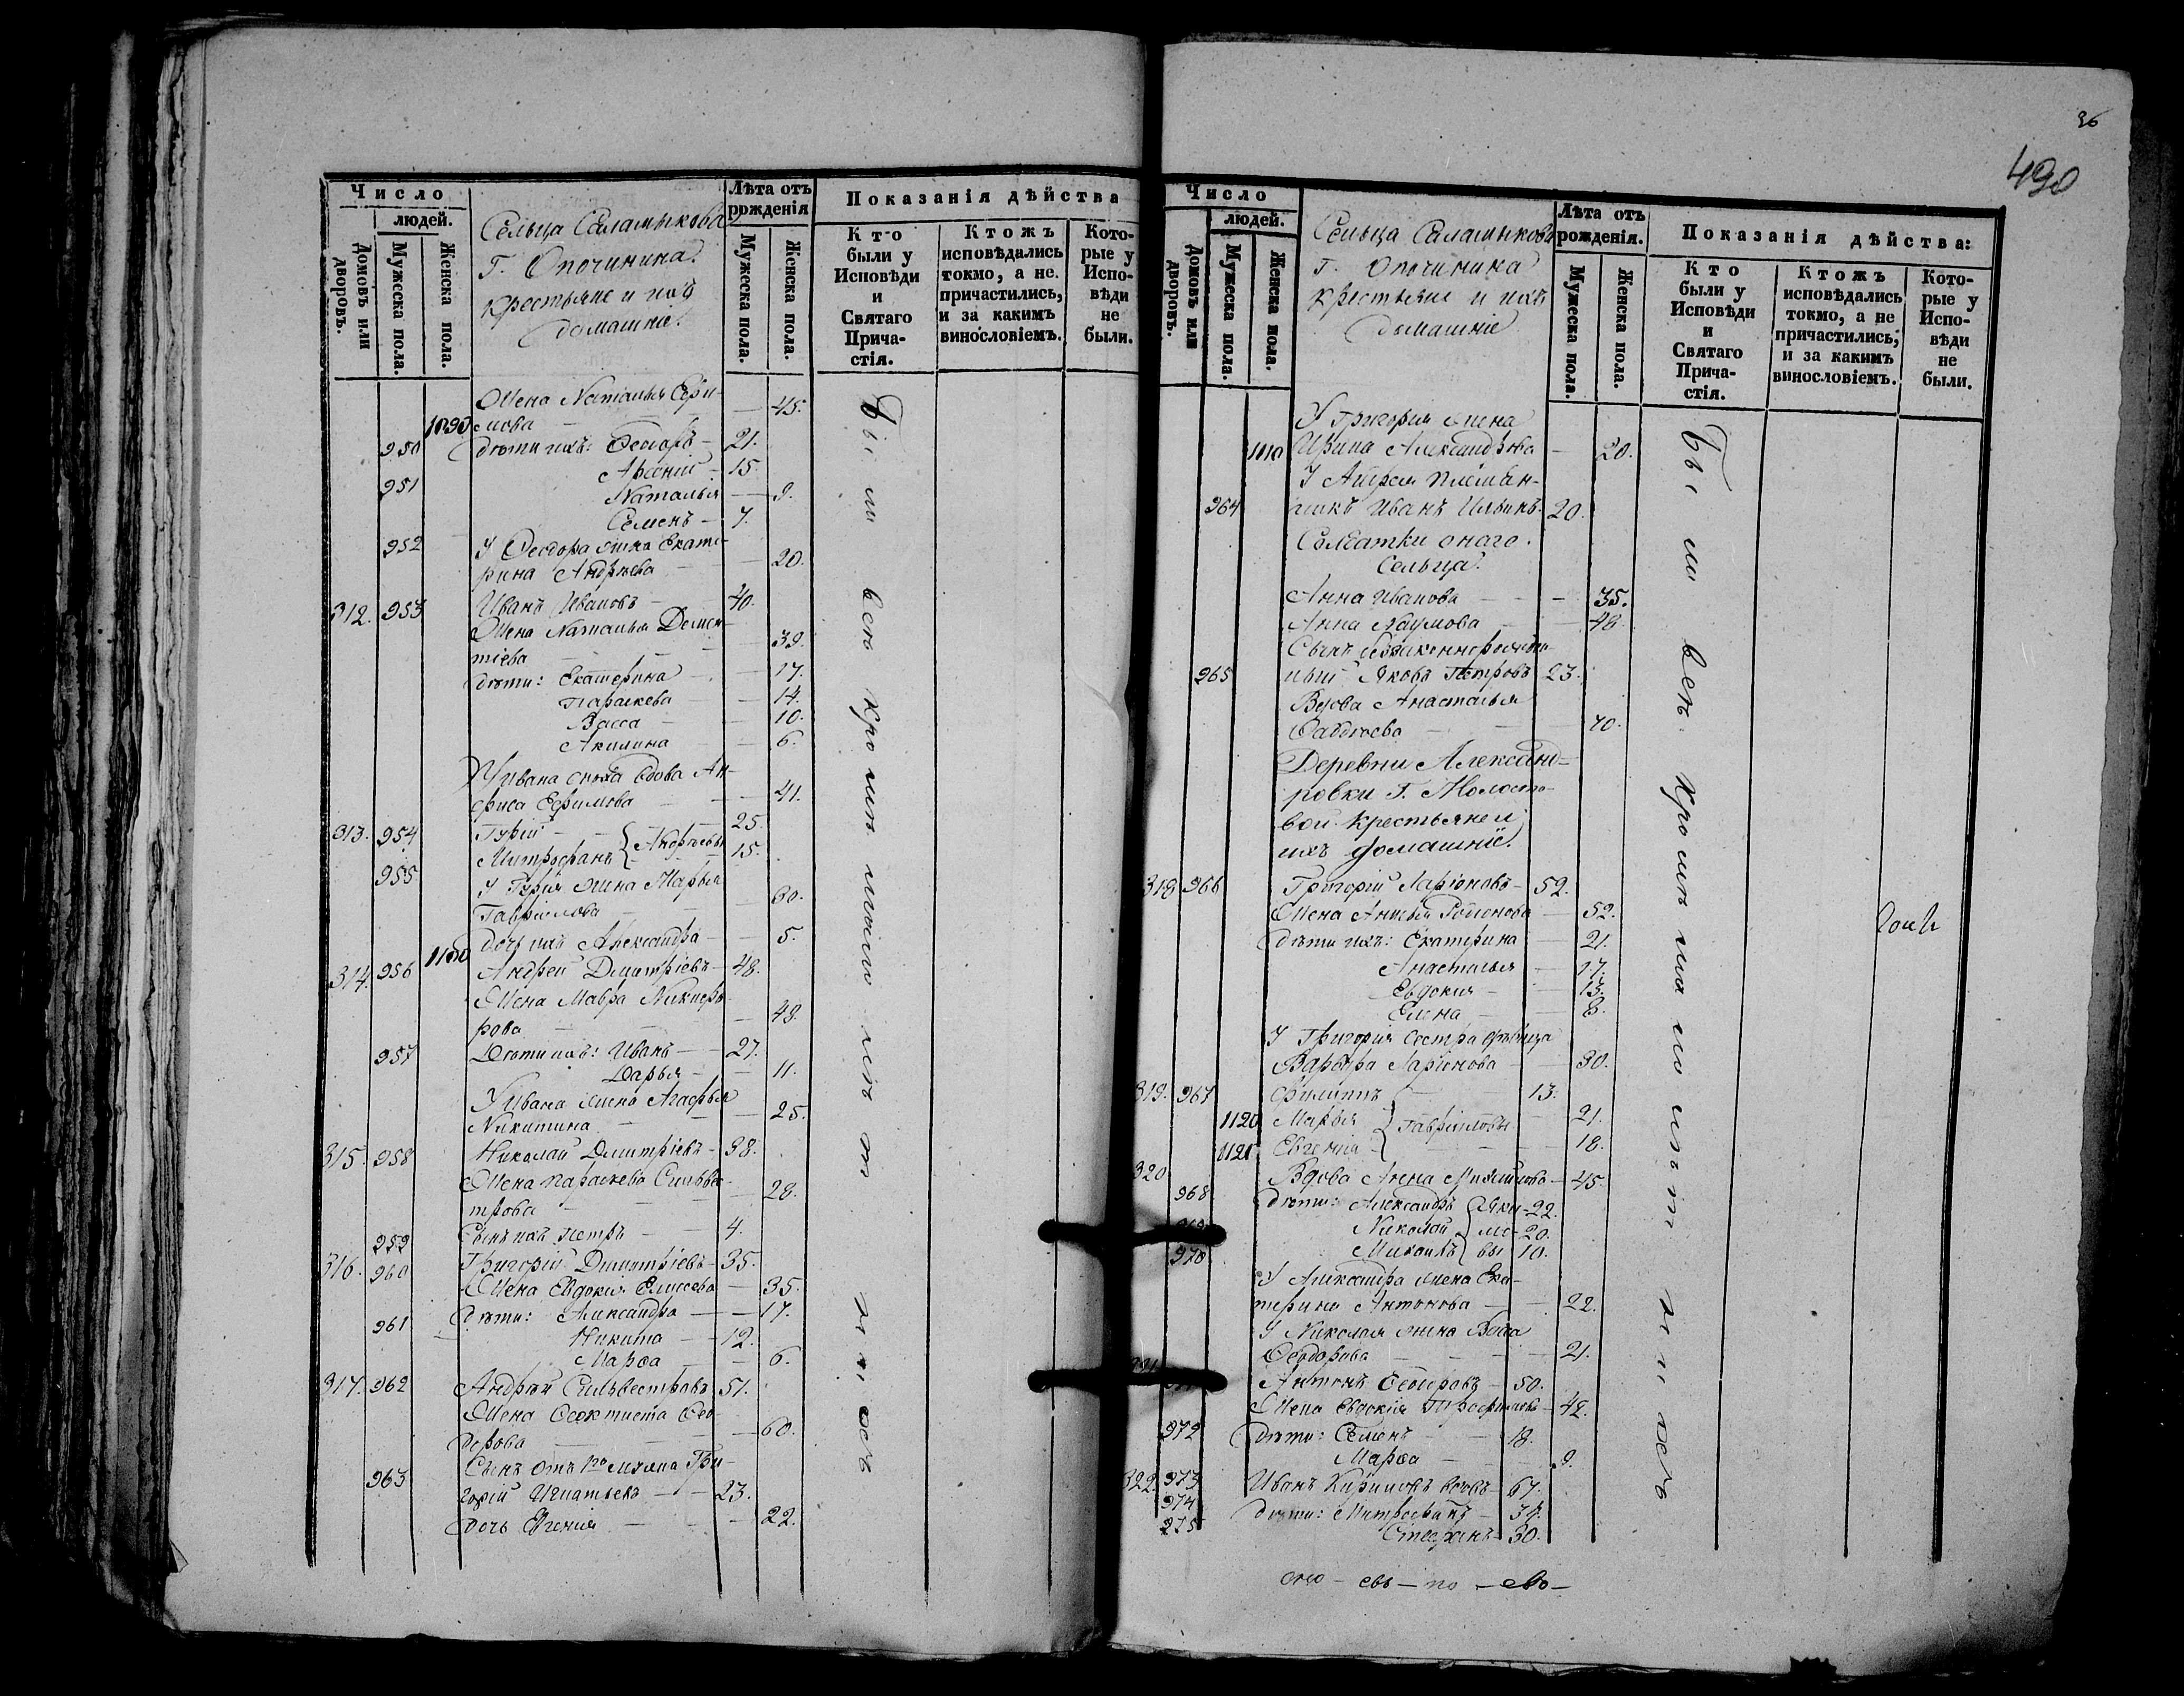 36
490
Число
людей.
Домовъ или дворовъ.
Мужеска пола.
Женска пола.
Сельца Саламыкова
Г. Опочинина
крестьяне и ихъ
домашніе.
Лѣта отъ рожденія
Мужеска пола.
Женска пола.
Показанія дѣйства
Кто были у Исповѣди и Святаго Причастія.
Ктожъ исповѣдались токмо, а не причастились, и за какимъ винословіемъ.
Которые у Исповѣди не были.
Жена Наталья
1090
950 дѣти ихъ: Ѳеодоръ — 21.
951 Арсеній — 15.
Наталья — 9.
952 Семенъ — 7.
У Ѳеодора жена Екате-
рина Андреева — 20.
312. 953 Иванъ Ивановъ — 40.
Жена Наталья Демен-
тіева — 39.
дѣти: Екатерина — 17.
Параскева — 14.
Васса — 10.
Акилина — 6.
У Ивана сноха вдова Ан-
фиса Ефимова — 41.
313. 954 Гурій — 25.
955 Митрофанъ } Андреевы 15.
У Гурія жена Марья
Гаврилова — 30.
1100 дочь ихъ Александра — 5.
314. 956 Андрей Дмитріевъ — 48.
Жена Мавра Никифо-
рова — 48.
957 Дѣти ихъ: Иванъ — 27.
Дарья — 11.
У Ивана жена Агафья
Никитина — 25.
315. 958 Николай Дмитріевъ — 38.
Жена Параскева Сильвес-
трова — 28.
959 Сынъ ихъ Петръ — 4.
316. 960 Григорій Димитріевъ — 35.
Жена Евдокія Елисеева — 35.
дѣти: Александра — 17.
961 Никита — 12.
Марѳа — 6.
317. 962 Андрей Сильвестровъ 51.
Жена Ѳеоктиста Ѳео-
дорова — 60.
963 Сынъ отъ 1го мужа Гри-
горій Игнатьевъ — 23.
дочь Евгенія — 22.
Число
людей.
Домовъ или дворовъ.
Мужеска пола.
Женска пола.
Сельца Саламыкова
Г. Опочинина
крестьяне и ихъ
домашніе
Лѣта отъ рожденія.
Мужеска пола.
Женска пола.
Показанія дѣйства:
Кто были у Исповѣди и Святаго Причастія.
Ктожъ исповѣдались токмо, а не причастились, и за какимъ винословіемъ.
Которые у Исповѣди не были.
У Григорія жена
1110 Ирина Александрова — 20.
У Андрея племян-
964 никъ Иванъ Ильинъ 20.
Солдатки онаго
Сельца.
Анна Иванова — 35.
Анна Наумова — 48.
Сынъ незаконнорожден-
965 ный Яковъ Петровъ 23.
Вдова Анастасья
Ѳаддѣева — 70.
Деревни Александ-
ровки Г. Молост-
вой крестьяне и
ихъ домашніе.
318 966 Григорій Ларіоновъ — 52.
Жена Анисья Родіонова — 52.
Дѣти ихъ: Екатерина — 21.
Анастасья — 17.
Евдокія — 13.
Елена — 8.
У Григорія сестра дѣвица
Варвара Ларіонова — 30.
319. 967 Филиппъ — 13.
1120 Марья } Гавриловы 21.
1121 Евгенія — 18.
320 Вдова Анна — 45.
968 Дѣти: Александръ } Яки — 22.
Николай } мо — 20.
970 Михаилъ } вы 10.
У Александра жена Ека-
терина Антонова — 22.
У Николая жена Васса
Ѳеодорова — 21.
Антонъ Ѳеодоровъ — 50.
Жена Евдокія Трофимова — 42.
972 Дѣти: Семенъ — 18.
Марѳа — 9.
322. 973 Иванъ Кириловъ вдовъ — 67.
974 Дѣти: Митрофанъ — 34.
975 Стефанъ — 30.